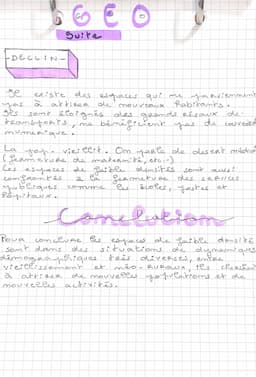 GEO
Suite
-DECLIN-
Il existe des espaces qui ne parviennent
pas à attirer de nouveaux habitants.
Ils sont éloignés des grands réseaux de
transports, ne bénéficient pas de
numérique.
La pop. vieillit. On parle de désert médical
(fermeture de maternité, etc..)
Les espaces de faible densités sont aussi
confrontés à la fermeture des services
publiques comme les écoles, postes et
hôpitaux.
Conclusion
Pour conclure les espaces de faible densité
sont dans des situations de dynamiques
démographiques très diverses, entre
vieillissement et néo-ruraux, ils cherchent
à attirer de nouvelles populations et de
nouvelles activités.